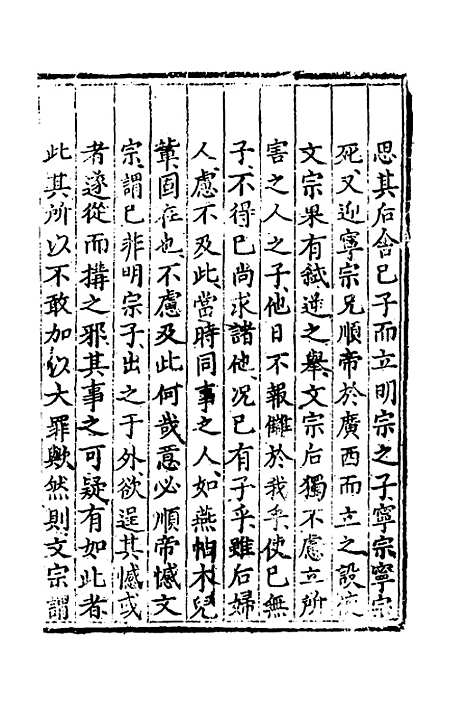 思其后舍已子而立明宗之子寧宗寧宗
死又迎寧宗兄順帝於廣西而立之設使
文宗果有弑逆之舉文宗后獨不慮立所
害之人之子他日不報讎於我乎使已無
子不得已尚求諸他况已有子乎雖后婦
人慮不及此當時同事之人如燕怗木兒
軰固在也不慮及此何哉意必順帝憾文
宗謂已非明宗子出之于外欲逞其憾或
者遂從而搆之邪其事之可疑有如此者
此其所以不敢加以大罪歟然則文宗謂